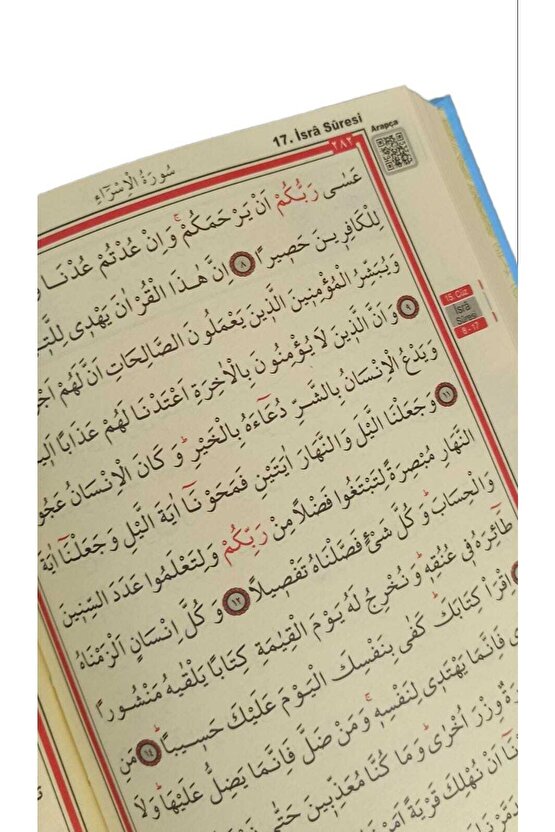 17. İsrâ Sûresi
Arapça
٢٨٢
سُورَةُ الْاِسْرَٓاءِ
عَسٰى رَبُّكُمْ اَنْ يَرْحَمَكُمْۚ وَاِنْ عُدْتُمْ عُدْنَاۢ
لِلْكَافِرٖينَ حَصٖيرًا ٨ اِنَّ هٰذَا الْقُرْاٰنَ يَهْدٖى
وَيُبَشِّرُ الْمُؤْمِنٖينَ الَّذٖينَ يَعْمَلُونَ الصَّالِحَاتِ اَنَّ لَهُمْ
٩ وَاَنَّ الَّذٖينَ لَا يُؤْمِنُونَ بِالْاٰخِرَةِ اَعْتَدْنَا لَهُمْ عَذَابًا
وَيَدْعُ الْاِنْسَانُ بِالشَّرِّ دُعَٓاءَهُ بِالْخَيْرِؕ وَكَانَ الْاِنْسَانُ
١١ وَجَعَلْنَا الَّيْلَ وَالنَّهَارَ اٰيَتَيْنِ فَمَحَوْنَٓا اٰيَةَ الَّيْلِ وَجَعَلْنَٓا اٰيَةَ
النَّهَارِ مُبْصِرَةً لِتَبْتَغُوا فَضْلًا مِنْ رَبِّكُمْ وَلِتَعْلَمُوا عَدَدَ السِّنٖينَ
وَالْحِسَابَؕ وَكُلَّ شَىْءٍ فَصَّلْنَاهُ تَفْصٖيلًا ١٢ وَكُلَّ اِنْسَانٍ اَلْزَمْنَاهُ
طَٓائِرَهُ فٖى عُنُقِهٖؕ وَنُخْرِجُ لَهُ يَوْمَ الْقِيٰمَةِ كِتَابًا يَلْقٰيهُ مَنْشُورًا
اِقْرَأْ كِتَابَكَؕ كَفٰى بِنَفْسِكَ الْيَوْمَ عَلَيْكَ حَسٖيبًاؕ ١٤ مَنِ
فَاِنَّمَا يَهْتَدٖى لِنَفْسِهٖۚ وَمَنْ ضَلَّ فَاِنَّمَا يَضِلُّ عَلَيْهَاؕ وَلَا
وِزْرَ اُخْرٰىؕ وَمَا كُنَّا مُعَذِّبٖينَ حَتّٰى
اَنْ نُهْلِكَ قَرْيَةً
15. Cüz
İsrâ
Sûresi
8 - 17